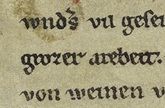 wnds vil geseit
grozer arebeit.
von weinen v